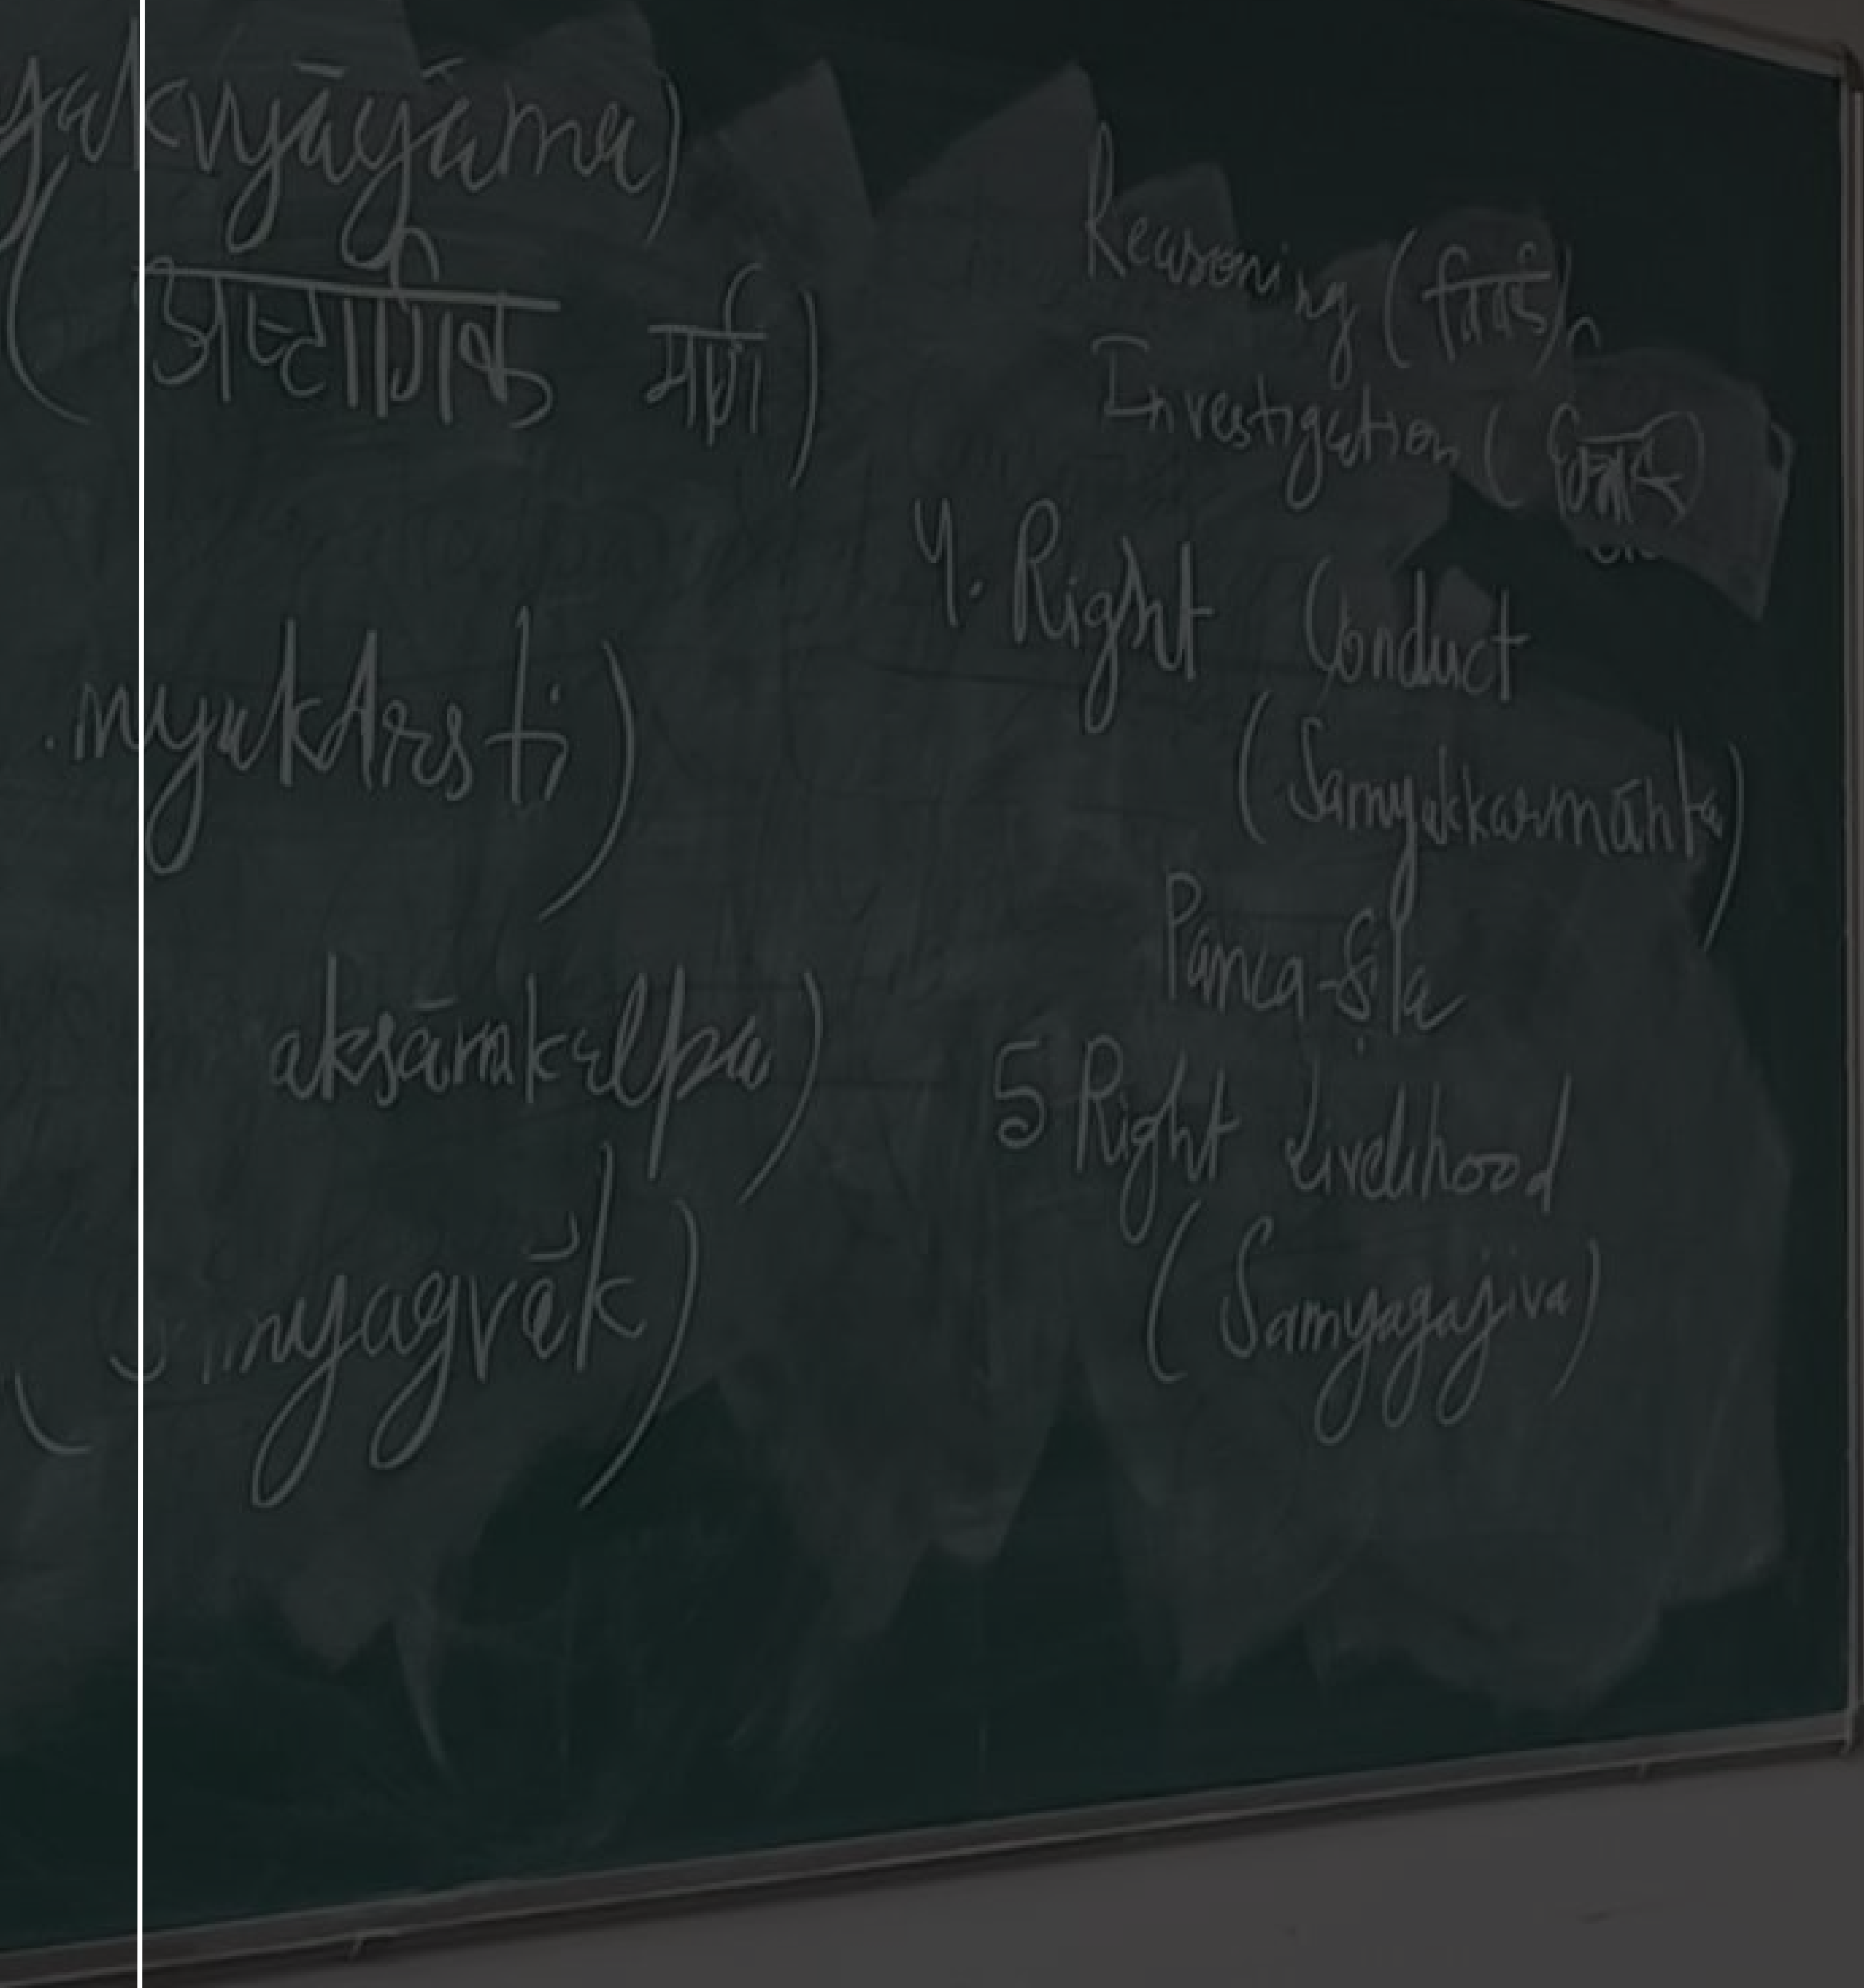 yakvyāyāma)
(अष्टांगिक मार्ग)
nyakdrsti)
aksāmkalpa)
nyagvāk)
Reasoning (वितर्क)
Investigation (
4. Right Conduct
(Samyakkarmānta)
Panca-Sila
5 Right Livelihood
(Samyagajiva)